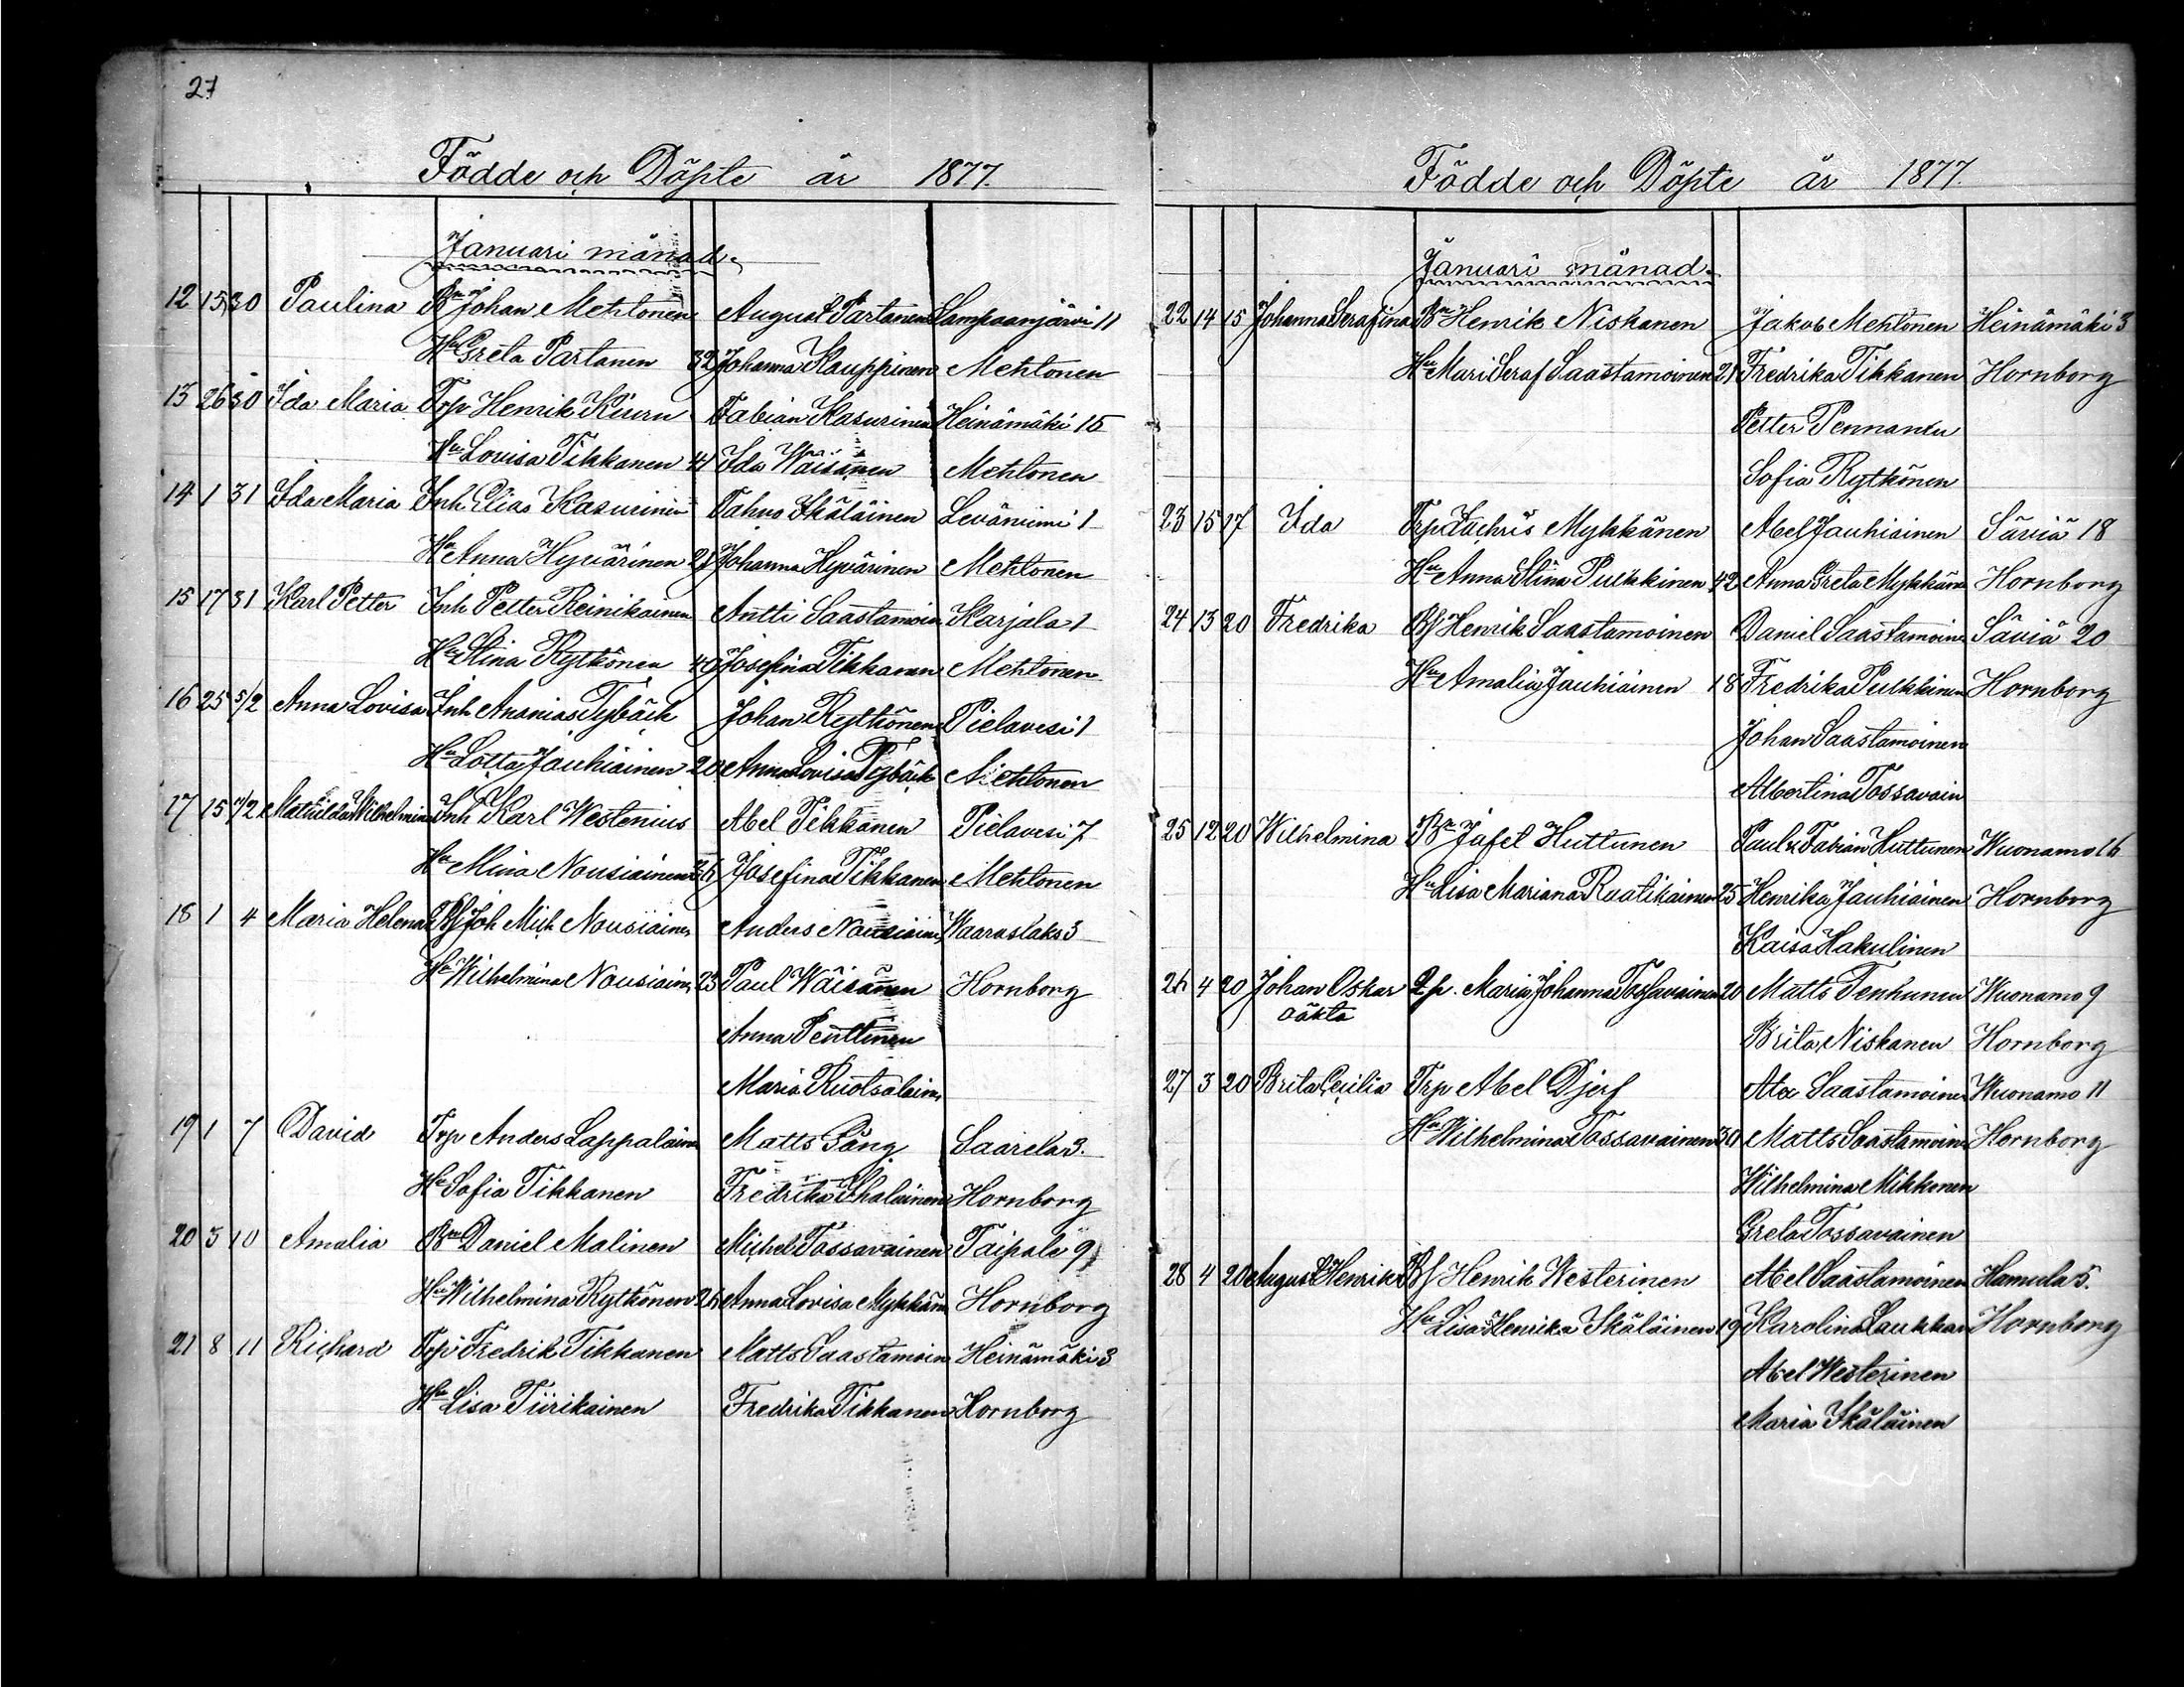 27
Födde och Döpte år 1877.
Januari månad.
12 15 30 Paulina Bn Johan Mehtonen August Partanen Lampaanjärvi 11
Hu Greta Partanen 32 Johanna Kauppinen Mehtonen
13 26 30 Ida Maria Trp Henrik Kiuru Fabian Kasurinen Heinämäki 15
Hu Lovisa Tikkanen 41 Ida Wäisänen Mehtonen
14 1 31 Ida Maria Inh Elias Kasurinen Pahvo Ikäläinen Leväniemi 1
Hu Anna Hyvärinen 27 Johanna Hyvärinen Mehtonen
15 17 31 Karl Petter Inh Petter Reinikainen Antti Saastamoin Karjala 1
Hu Stina Rytkönen 40 Josefina Tikkanen Mehtonen
16 25 5/2 Anna Lovisa Inh Ananias Tybäck Johan Rytkönen Pielavesi 1
Hu Lotta Jauhiainen 20 Anna Lovisa Tybäck Mehtonen
17 15 /2 Mathilda Wilhelmina Inh Karl Westenius Abel Tikkanen Pielavesi 7
Hu Mina Nousiainen 36 Josefina Tikkanen Mehtonen
18 1 4 Maria Helena Bs Joh Mich Nousiainen Anders Nousiainen Waaraslaks 3
Hu Wilhelmina Nousiainen 23 Paul Wäisänen Hornborg
Anna Penttinen
Maria Ruotsalain
19 1 7 David Trp Anders Lappalain Matts Gång Saarela 3.
Hu Sofia Tikkanen Fredrika Ikäläinen Hornborg
20 3 10 Amalia Bn Daniel Malinen Michel Tossavainen Taipale 9
Hu Wilhelmina Rytkönen 26 Anna Lovisa Mykkän Hornborg
21 8 11 Richard Trp Fredrik Tikkanen Matts Saastamoin Heinämäki 3
Hu Lisa Tiirikainen Fredrika Tikkanen Hornborg
Födde och Döpte år 1877.
Januari månad.
22 14 15 Johanna Serafina Bn Henrik Niskanen Jakob Mehtonen Heinämäki 3
Hu Mari Seraf Saastamoinen 21 Fredrika Tikkanen Hornborg
Petter Pennanen
Sofia Rytkönen
23 15 17 Ida Trp Zachris Mykkänen Abel Jauhiainen Säviä 18
Hu Anna Stina Pulkkinen 42 Anna Greta Mykkän Hornborg
24 13 20 Fredrika Bs Henrik Saastamoinen Daniel Saastamoin Säviä 20
Hu Amalia Jauhiainen 18 Fredrika Pulkkinen Hornborg
Johan Saastamoinen
Albertina Tossavain
25 12 20 Wilhelmina Bn Jafet Huttunen Paul & Fabian Huttunen Wuonamo 16
Hu Lisa Mariana Raatikainen 25 Henrika Jauhiainen Hornborg
Kaisa Hakulinen
26 4 20 Johan Oskar Qp. Maria Johanna Tossavainen 20 Matts Tenhunen Wuonamo 9
oäkta Brita Niskanen Hornborg
27 3 20 Brita Cecilia Trp Abel Djerf Alex Saastamoinen Wuonamo 11
Hu Wilhelmina Tossavainen Matts Saastamoin Hornborg
Wilhelmina Mikkonen
Greta Tossavainen
28 4 20 August Henrik Bs Henrik Westerinen Abel Saastamoinen Hamula 5.
Hu Lisa Henrika Ikäläinen 19 Karolina Laukkan Hornborg
Abel Westerinen
Maria Ikäläinen